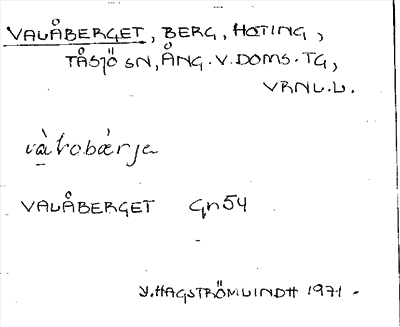 VALÅBERGET, BERG, HOTING,
TÅSJÖ SN, ÅNG. V. DOMS. TG,
VRNL.L.
VALÅBERGET Gn54
Y. HAGSTRÖMLINDH 1971.